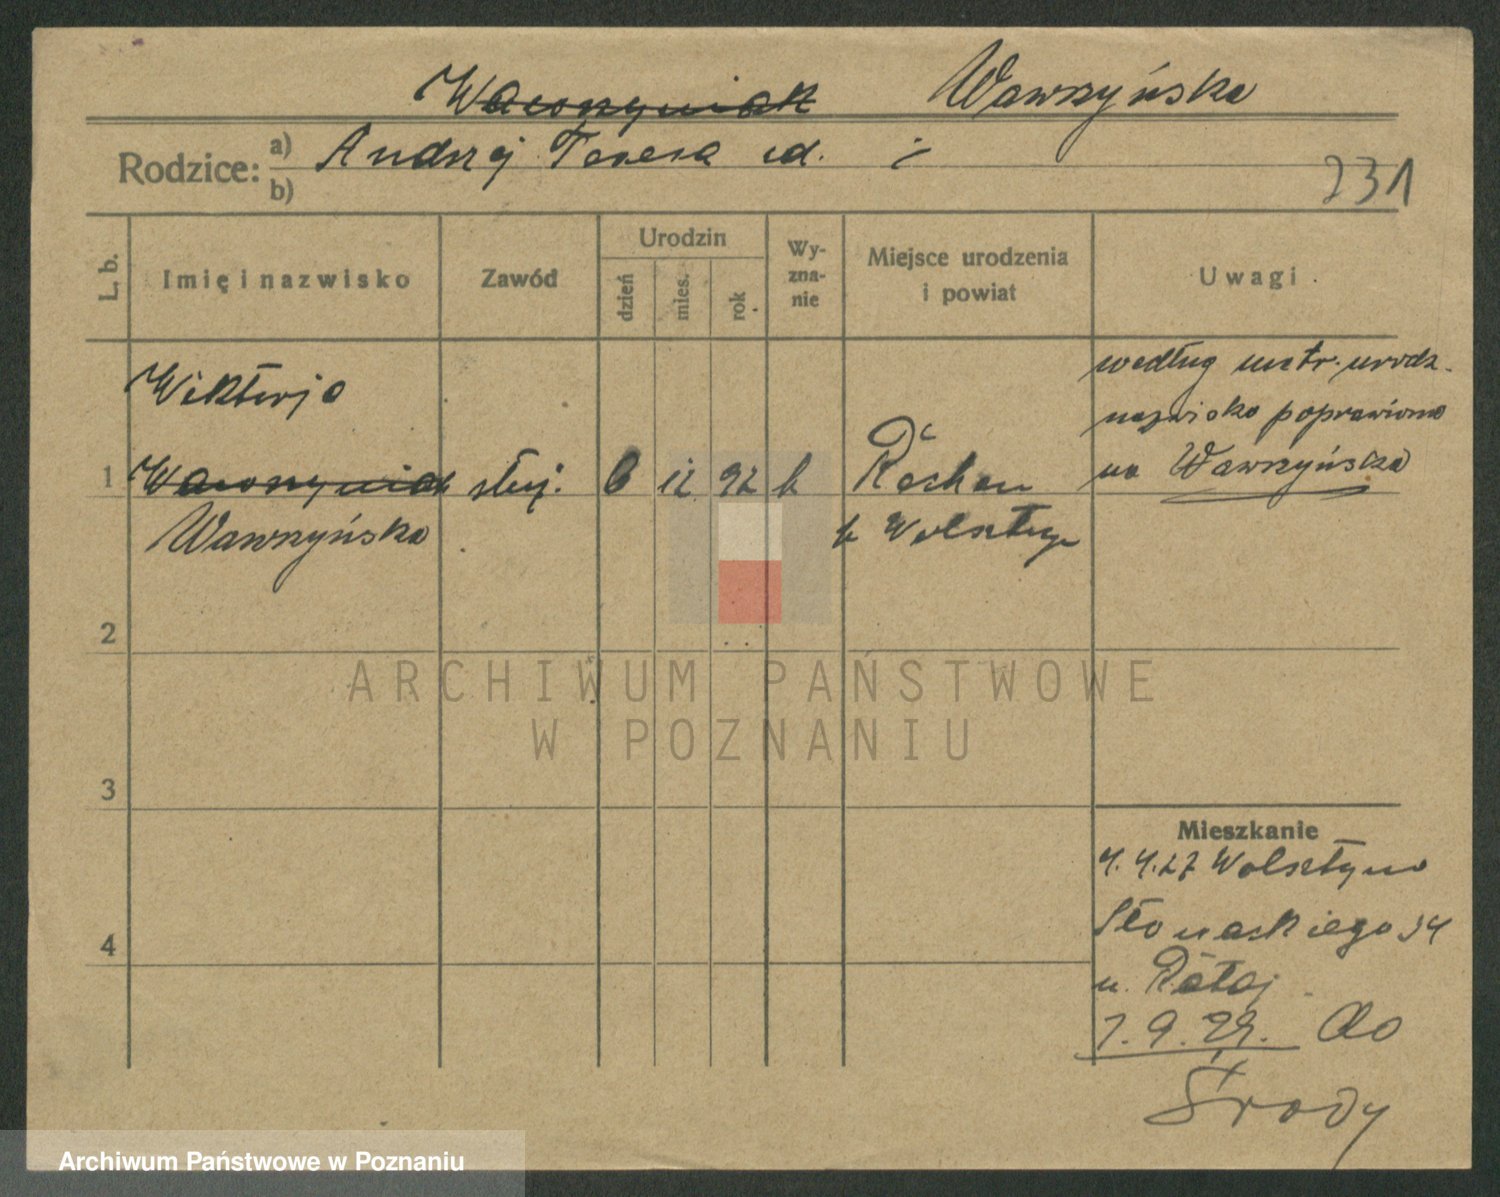 Wawrzyniak Wawrzyńska
Rodzice: a) Andrzej Teresa
b)
231
L. b.
Imię i nazwisko
Zawód
Urodzin
dzień
mies.
rok
Wy-
zna-
nie
Miejsce urodzenia
i powiat
Uwagi
Wiktorja
1 Wawrzyniak służ. 6 12 92 k
Wawrzyńska
Wolsztyn
według metr. urodz.
nazwisko poprawiono
na Wawrzyńska
2
3
4
Mieszkanie
4.4.27 Wolsztyna
Słowackiego 34
u. Rataj
1.9.29. do
Środy
ARCHIWUM PAŃSTWOWE
W POZNANIU
Archiwum Państwowe w Poznaniu